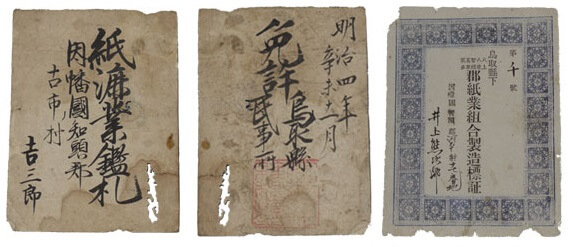 紙漉業鑑札
因幡國知頭郡
古市ノ村
吉三郎
明治四年
辛未十一月
免許
鳥取縣
民事所
第千號
鳥取縣下
郡紙業組合製造標証
井上熊次郎